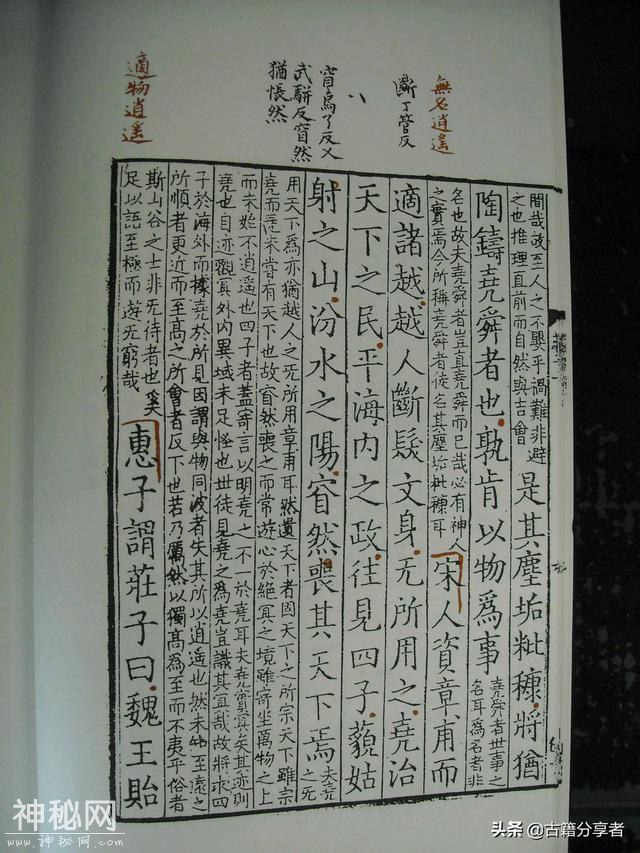 無名逍遥
斷丁管反
窅烏了反又
武駢反窅然
猶悵然
適物逍遥
間哉故至人之不嬰乎禍難非避
之也推理直前而自然與吉會
是其塵垢粃穅將猶
陶鑄堯舜者也孰肯以物爲事
堯舜者世事之
名耳爲名者非
名也故夫堯舜者豈直堯舜而已哉必有神人
之實焉今所稱堯舜者徒名其塵垢粃穅耳
宋人資章甫而
適諸越越人斷髮文身无所用之堯治
天下之民平海内之政往見四子藐姑
射之山汾水之陽窅然喪其天下焉
夫堯
之无
用天下爲亦猶越人之无所用章甫耳然遺天下者因天下之所宗天下雖宗
堯而堯未嘗有天下也故窅然喪之而常遊心於絶冥之境雖寄坐萬物之上
而未始不逍遥也四子者蓋寄言以明堯之不一於堯耳夫堯實冥矣其迹則
堯也自迹觀冥外内異域未足怪也世徒見堯之爲堯豈識其冥哉故將求四
子於海外而據堯於所見因謂與物同波者失其所以逍遥也然未知至遠之
所順者更近而至高之所會者反下也若乃厲然以獨高爲至而不夷乎俗者
斯山谷之士非无待者也奚
足以語至極而遊无窮哉
惠子謂莊子曰魏王貽
神秘网
www.神秘网.com
头条 @古籍分享者